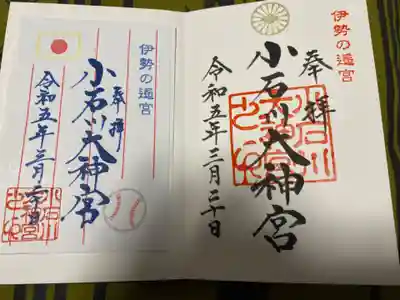 伊勢の遥宮
奉拝
小石川大神宮
令和五年三月二十日
伊勢の遥宮
奉拝
小石川大神宮
令和五年三月二十日